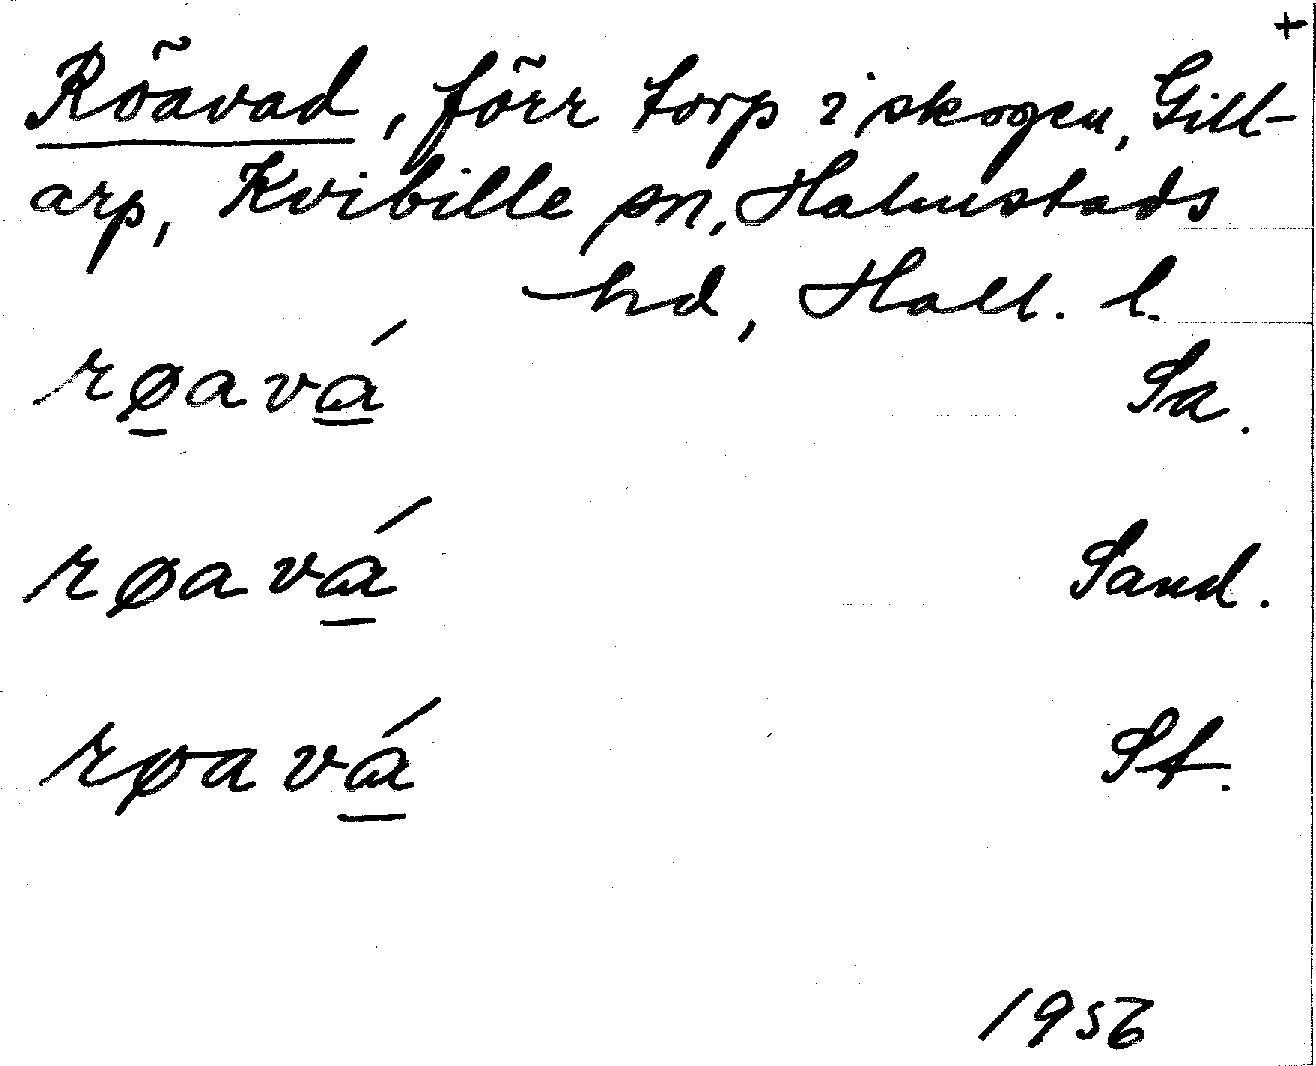 +
Röavad, förr torp i skogen, Gill-
arp, Kvibille sn, Halmstads
hd, Hall. l.
rø̱avá̱ Sa.
røavá̱ Sand.
røavá̱ St.
1956